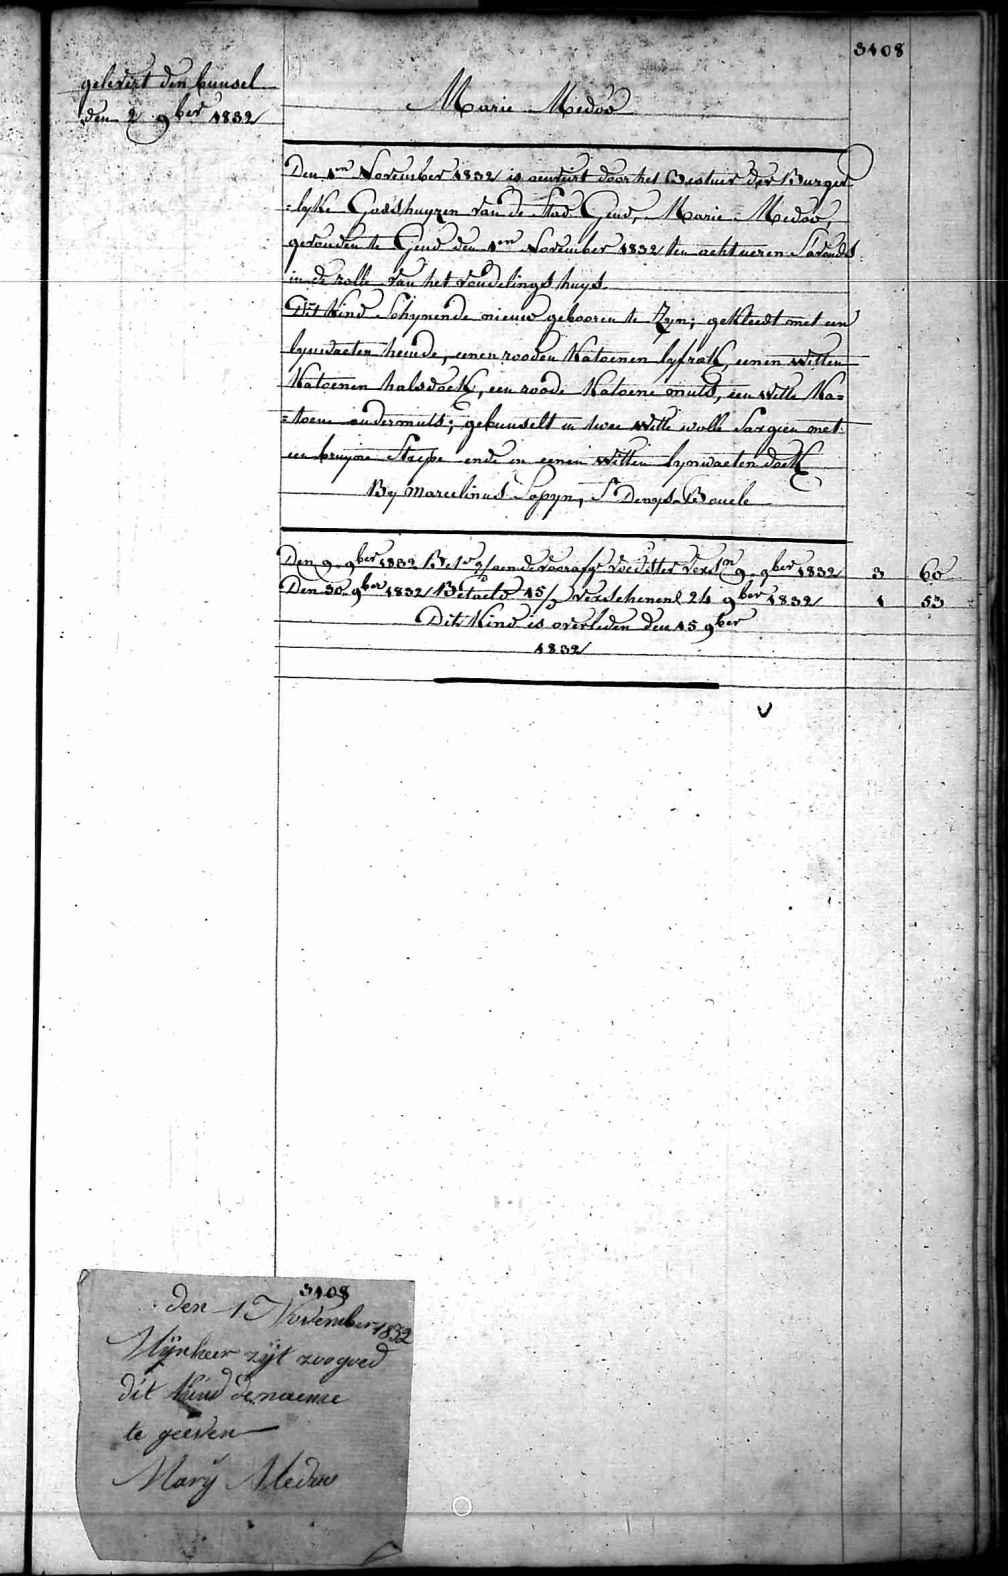 3408
gelevert den bunsel
den 2 9ber 1832
Marie Medoo
Den 1en November 1832 is aenveirt door het Bestuir der Burger
=lyke Godshuyzen van de Stad Gend, Marie Medoo,
gevonden te Gend den 1en November 1832 ten acht ueren S'avonds
in de rolle van het vondelingshuys.
Dit Kind Schynende nieuw gebooren te Zyn; gekleedt met een
lynwaeten hemde, eenen rooden Katoenen lyfrok, eenen witten
Katoenen halsdoek, een roode Katoene muts, een witte Ka=
=toene ondermuts; gebunselt in twee witte wolle Sargien met
een bruyne Strepe ende in eenen witten lynwaeten doek
By Marcelinus Sopyn, St Denys-Boucle
Den 9 9ber 1832 aen de voedster 9 9ber 1832 3 60
Den 30 9ber 1832 Betaeld 15/ verschenen 24 9ber 1832 1 53
Dit Kind is overleden den 15 9ber
1832
3408
den 1 November 1832
Mÿnheer zÿt zoo goed
dit kind de naeme
te geeven
Marÿ Medoo